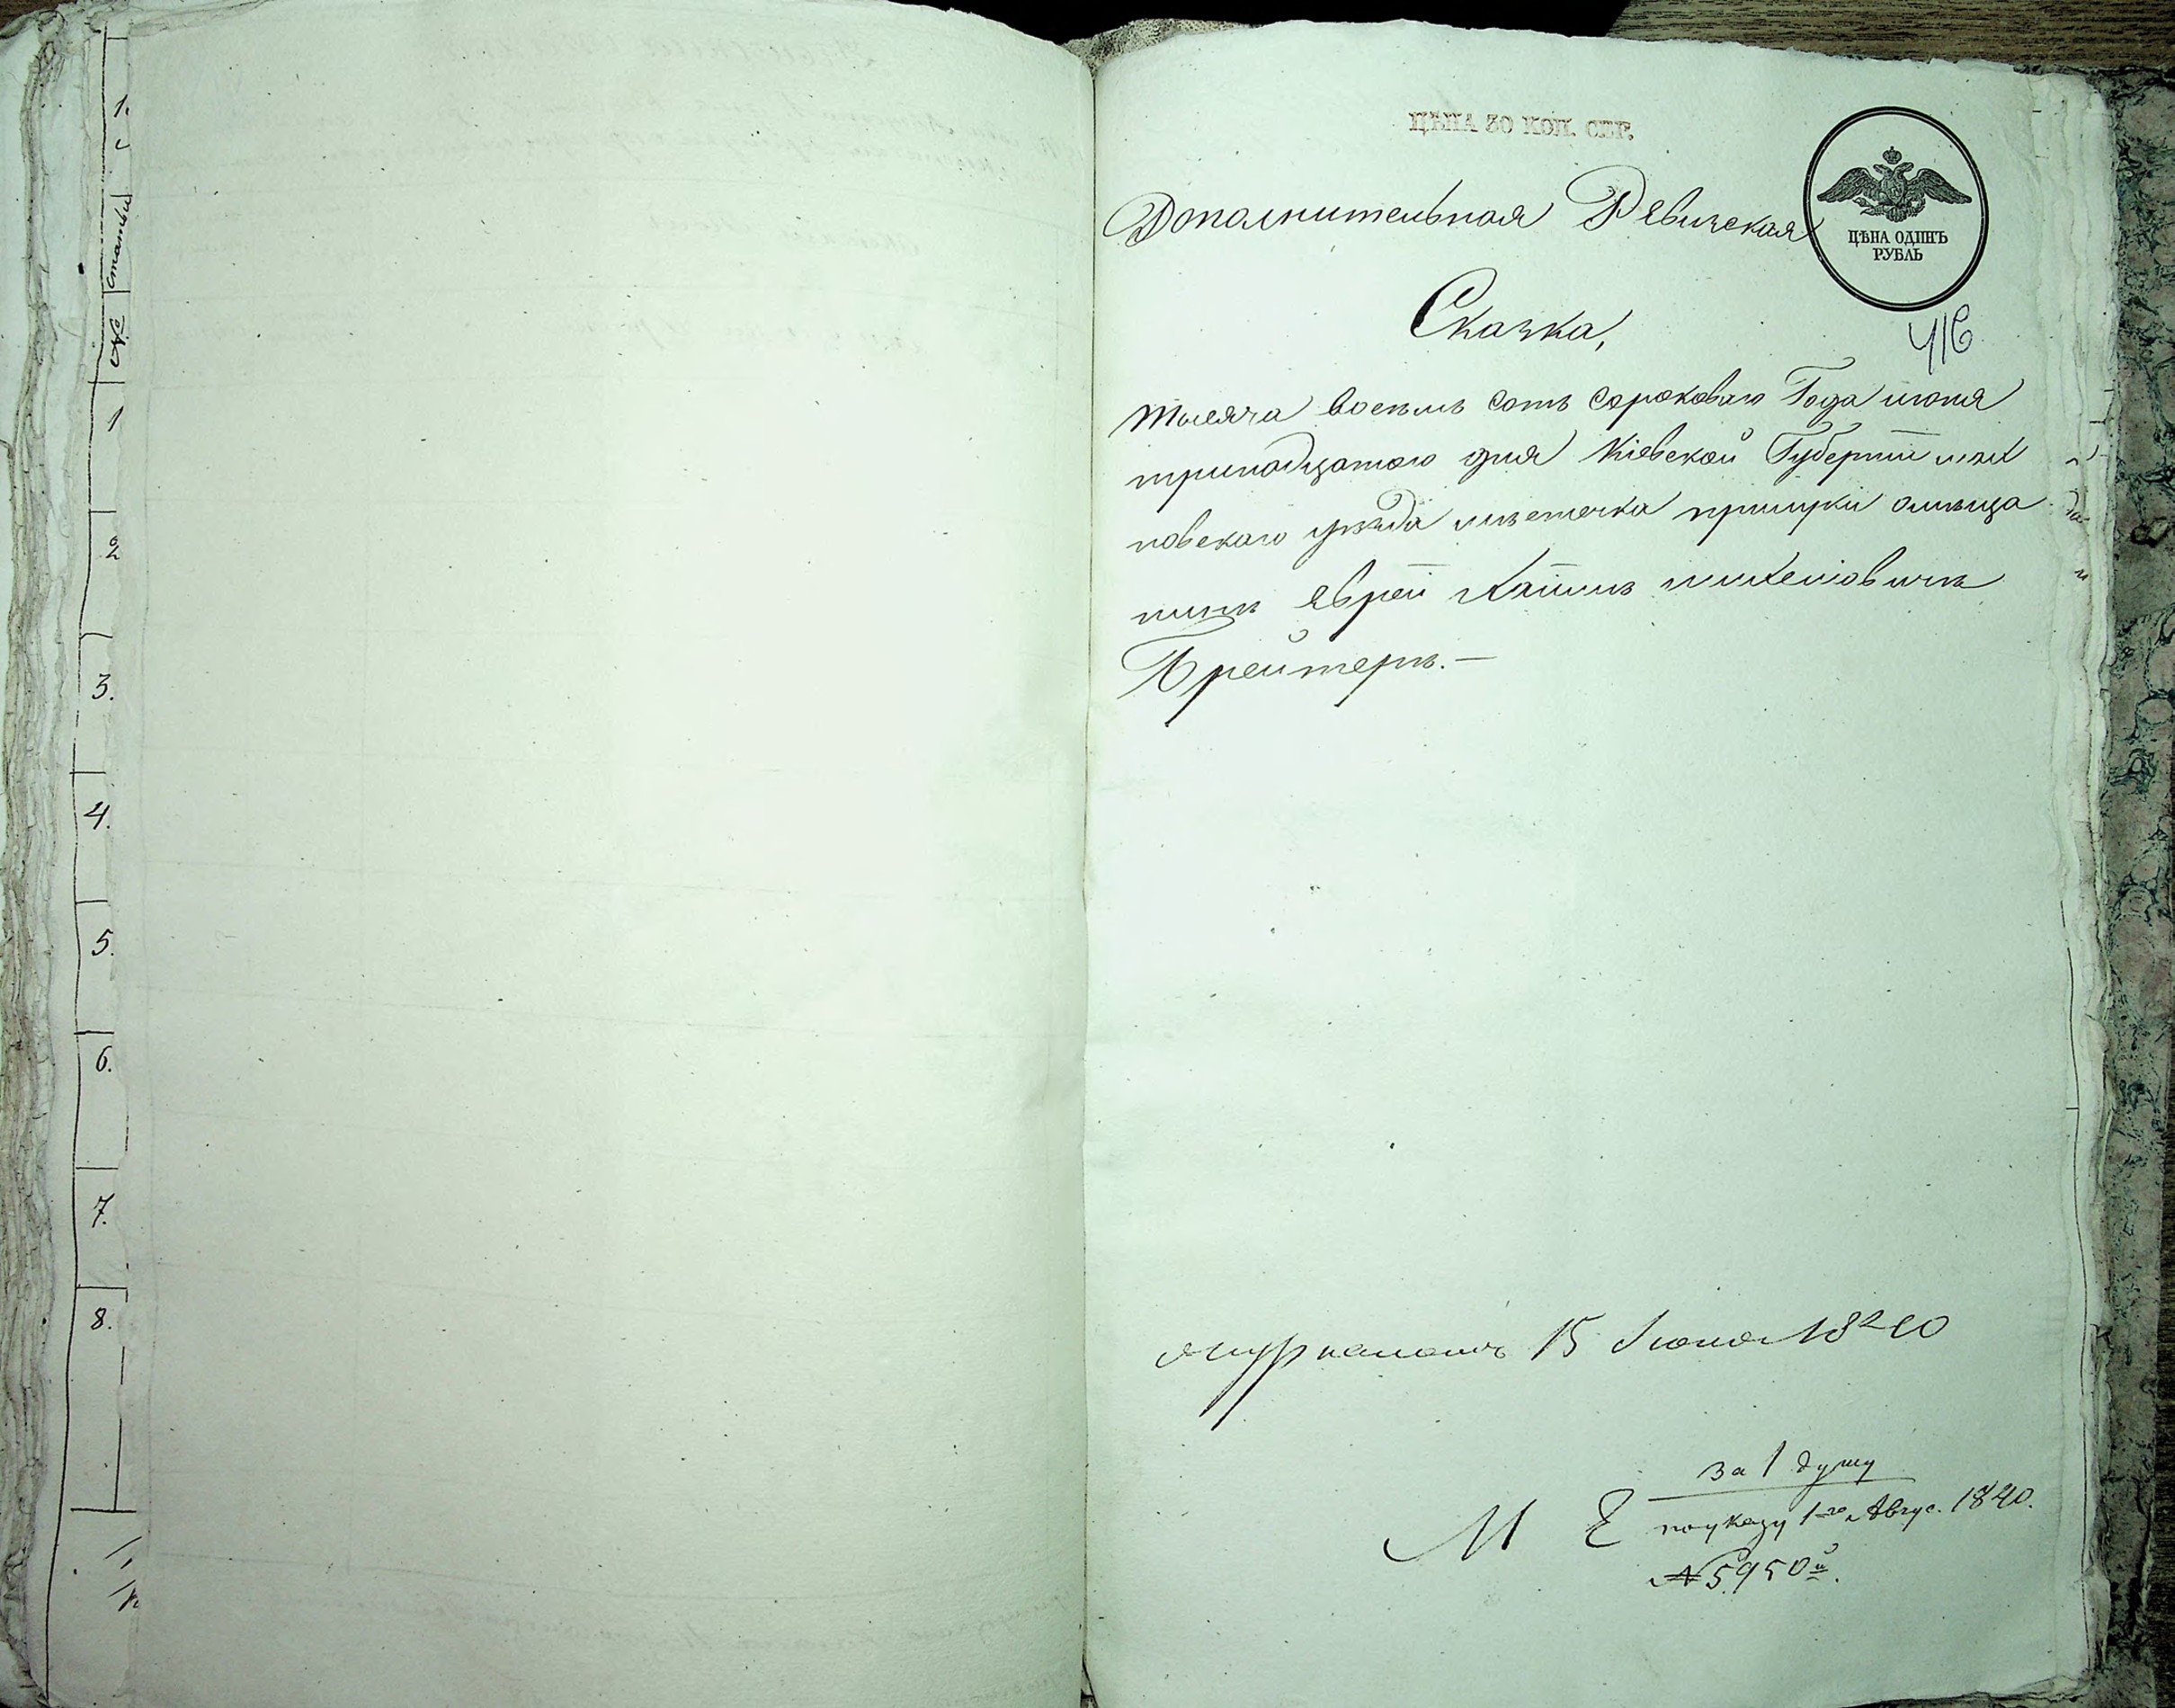 1.
№ статьи
1
2
3.
4.
5.
6.
7.
8.
ЦѢНА 30 КОП. СЕР.
ЦѢНА ОДИНЪ
РУБЛЬ
Дополнительная Ревизская
Сказка,
416
тысяча восемь сотъ сороковаго Года июня
тринадцатого дня Кіевской Губерніи
повскаго уезда местечка
Еврей Хаимъ
Брейтеръ.—
15 Іюня 1840
за 1 душу
М Е
по указу 1-го Авгус. 1840.
№ 5950й.